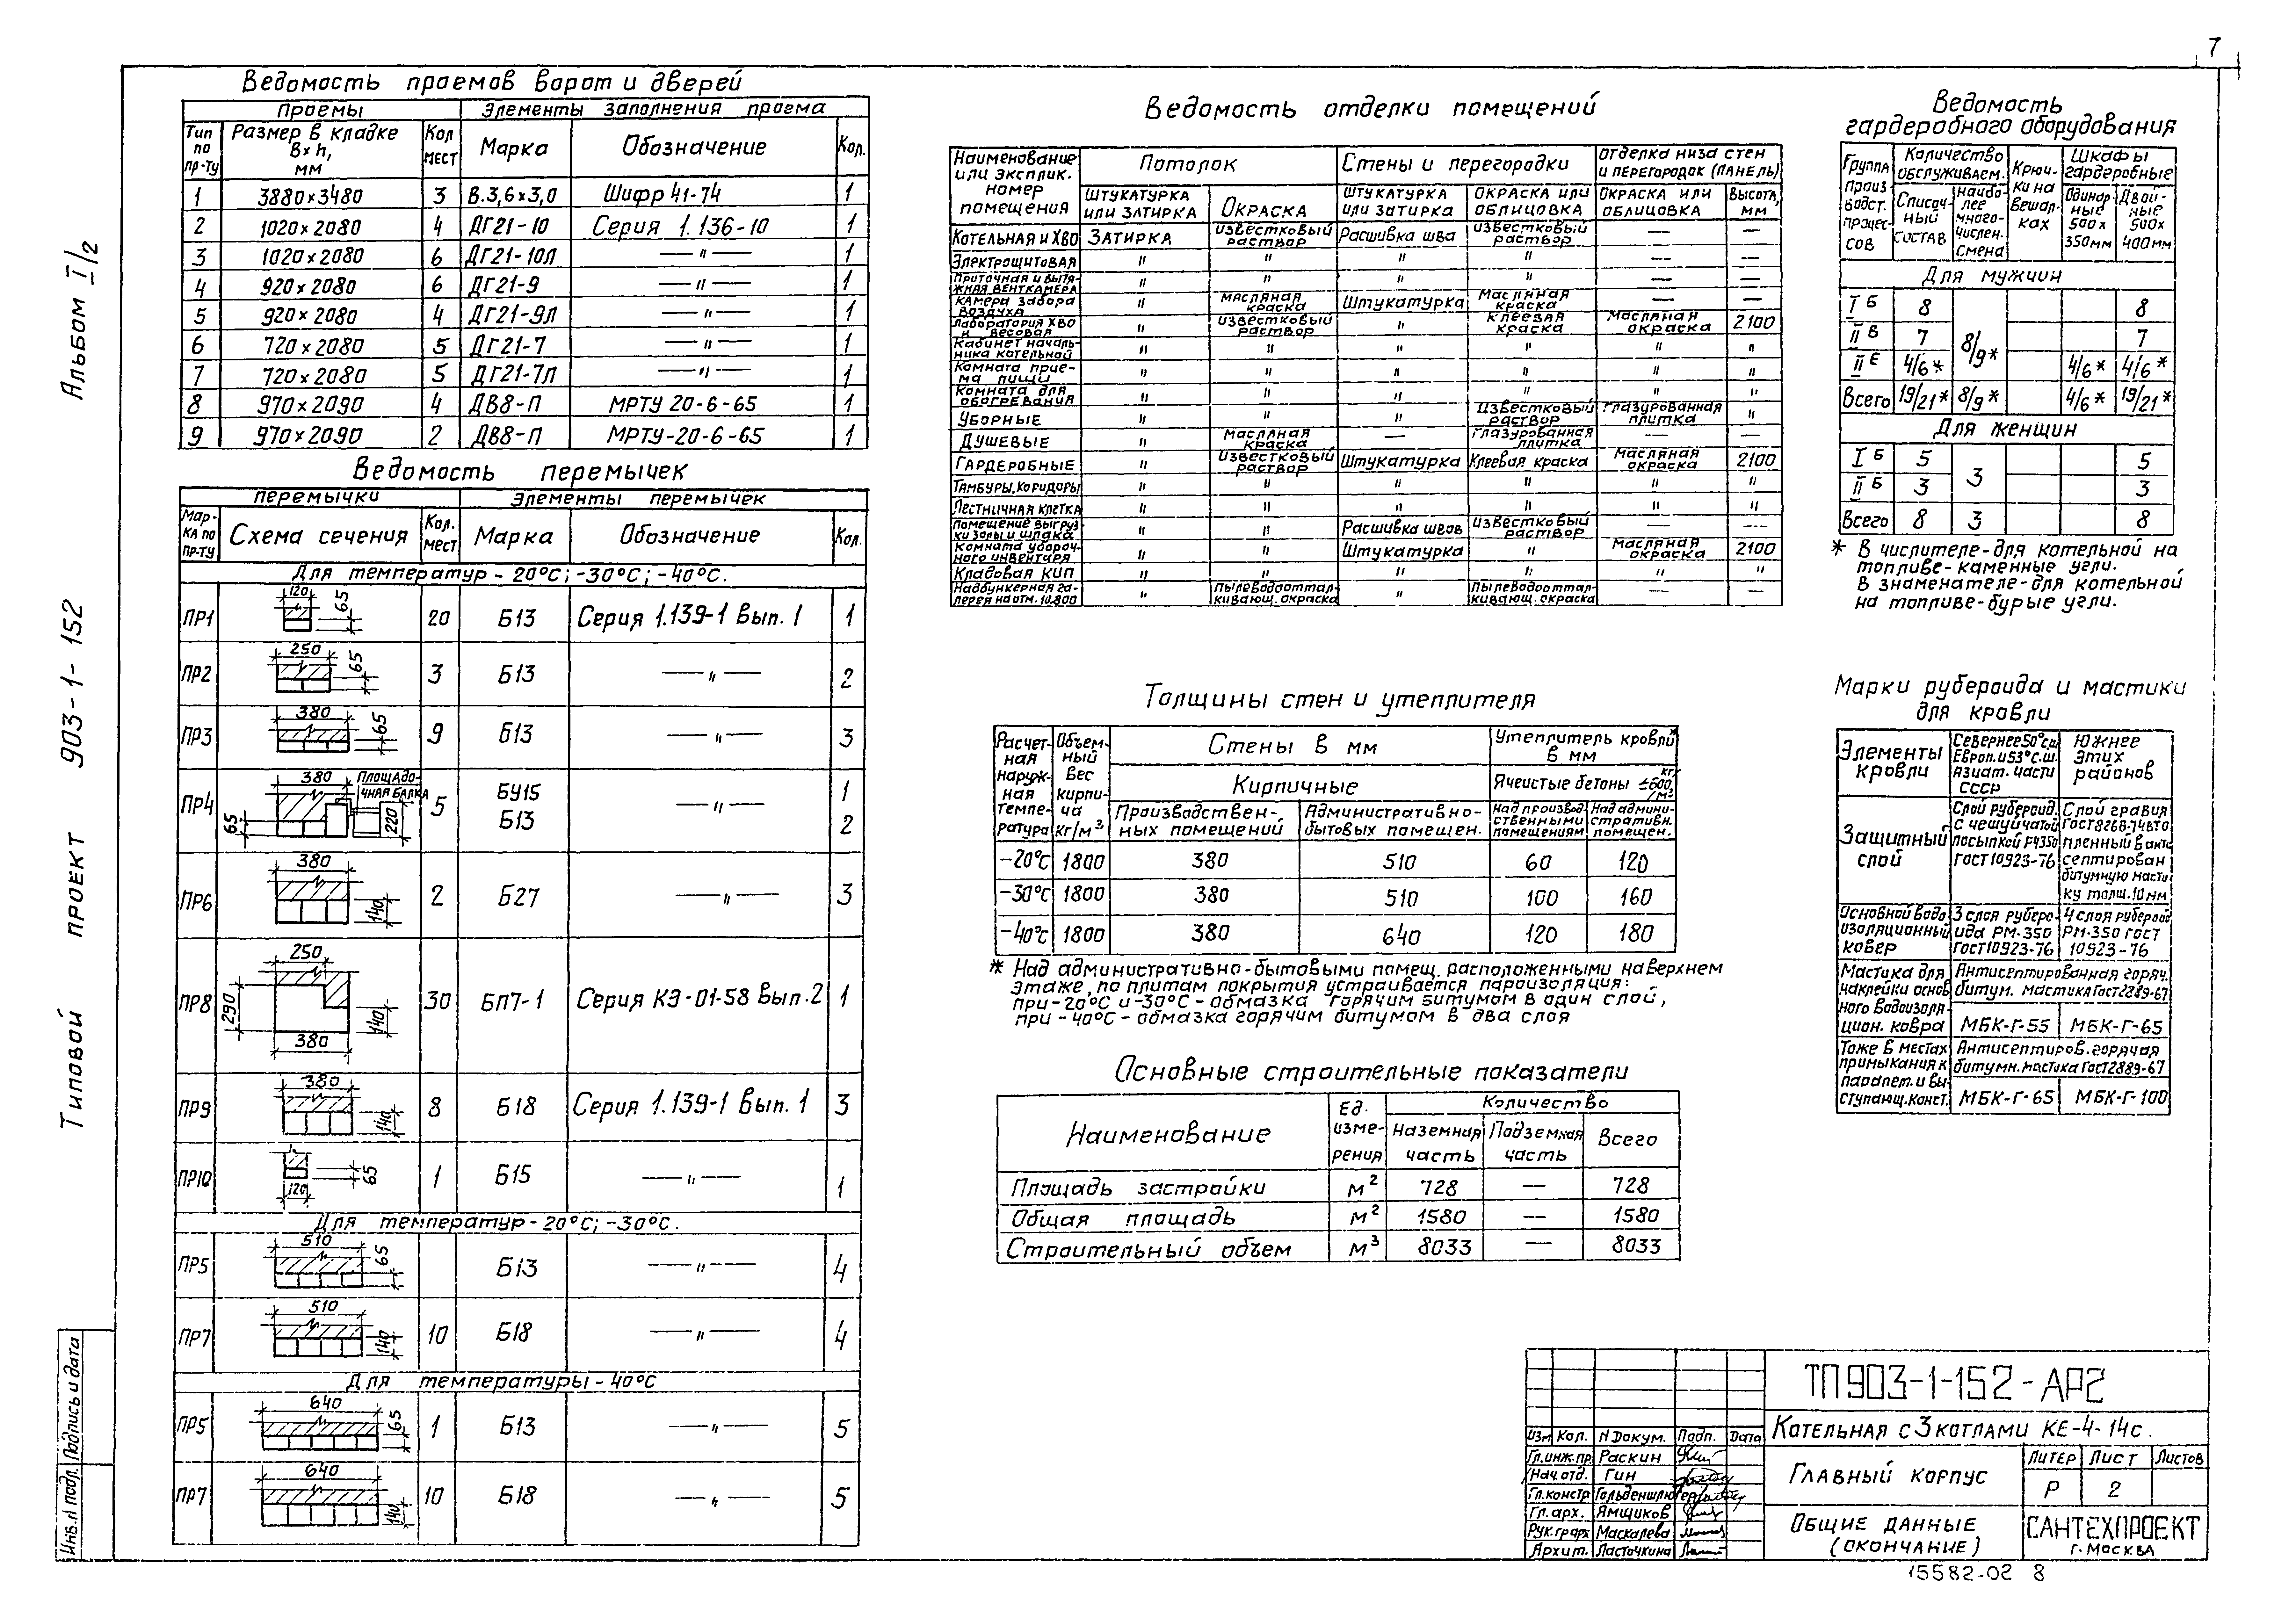 7
Альбом I/2
Типовой проект 903-1-152
Инв.N подл. Подпись и дата
Ведомость проемов ворот и дверей
Проемы Элементы заполнения проема
Тип по пр-ту Размер в кладке в×h, мм Кол мест Марка Обозначение Кол.
1 3880×3480 3 В.3,6×3,0 Шифр 41-74 1
2 1020×2080 4 ДГ21-10 Серия 1.136-10 1
3 1020×2080 6 ДГ21-10Л —〃— 1
4 920×2080 6 ДГ21-9 —〃— 1
5 920×2080 4 ДГ21-9Л —〃— 1
6 720×2080 5 ДГ21-7 —〃— 1
7 720×2080 5 ДГ21-7Л —〃— 1
8 970×2090 4 ДВ8-П МРТУ 20-6-65 1
9 970×2090 2 ДВ8-П МРТУ-20-6-65 1
Ведомость перемычек
перемычки Элементы перемычек
Марка по пр-ту Схема сечения Кол. мест Марка Обозначение Кол.
Для температур -20°С; -30°С; -40°С.
ПР1 120 65 20 Б13 Серия 1.139-1 Вып. 1 1
ПР2 250 65 3 Б13 —〃— 2
ПР3 380 65 9 Б13 —〃— 3
ПР4 380 Площадочная балка 65 220 5 БУ15 —〃— 1
Б13 2
ПР6 380 140 2 Б27 —〃— 3
ПР8 250 290 140 380 30 БП7-1 Серия КЭ-01-58 Вып.2 1
ПР9 380 140 8 Б18 Серия 1.139-1 Вып. 1 3
ПР10 65 120 1 Б15 —〃— 1
Для температур -20°С; -30°С.
ПР5 510 65 Б13 —〃— 4
ПР7 510 140 10 Б18 —〃— 4
Для температуры -40°С
ПР5 640 65 1 Б13 —〃— 5
ПР7 640 140 10 Б18 —〃— 5
Ведомость отделки помещений
Наименование или эксплик. номер помещения Потолок Стены и перегородки Отделка низа стен и перегородок (панель)
Штукатурка или затирка Окраска Штукатурка или затирка Окраска или облицовка Окраска или облицовка Высота, мм
Котельная и ХВО Затирка Известковый раствор Расшивка шва Известковый раствор — —
Электрощитовая 〃 〃 〃 〃 — —
Приточная и вытяжная венткамера 〃 〃 〃 〃 — —
Камера забора воздуха 〃 Масляная краска Штукатурка Масляная краска — —
Лаборатория ХВО и весовая 〃 Известковый раствор 〃 Клеевая краска Масляная окраска 2100
Кабинет начальника котельной 〃 〃 〃 〃 〃 〃
Комната приема пищи 〃 〃 〃 〃 〃 〃
Комната для обогревания 〃 〃 〃 〃 〃 〃
Уборные 〃 〃 〃 Известковый раствор Глазурованная плитка 〃
Душевые 〃 Масляная краска — Глазурованная плитка — —
Гардеробные 〃 Известковый раствор Штукатурка Клеевая краска Масляная окраска 2100
Тамбуры, коридоры 〃 〃 〃 〃 〃 〃
Лестничная клетка 〃 〃 〃 〃 〃 〃
Помещение выгрузки золы и шлака 〃 〃 Расшивка швов Известковый раствор — —
Комната уборочного инвентаря 〃 〃 Штукатурка 〃 Масляная окраска 2100
Кладовая КИП 〃 〃 〃 〃 〃 〃
Надбункерная галерея на отм. 10.800 〃 Пылеводоотталкивающ. окраска 〃 Пылеводоотталкивающ. окраска — —
Толщины стен и утеплителя
Расчетная наружная температура Объемный вес кирпича кг/м³ Стены в мм Утеплитель кровли* в мм
Кирпичные Ячеистые бетоны ≤600 кг/м³
Производственных помещений Административно-бытовых помещен. Над производственными помещениям Над административн. помещен.
-20°С 1800 380 510 60 120
-30°С 1800 380 510 100 160
-40°С 1800 380 640 120 180
* Над административно-бытовыми помещ. расположенными на верхнем
этаже, по плитам покрытия устраивается пароизоляция:
при -20°С и -30°С - обмазка горячим битумом в один слой,
при -40°С - обмазка горячим битумом в два слоя
Основные строительные показатели
Наименование Ед. измерения Количество
Наземная часть Подземная часть Всего
Площадь застройки м² 728 — 728
Общая площадь м² 1580 — 1580
Строительный объем м³ 8033 — 8033
Ведомость
гардеробного оборудования
Группа производст. процессов Количество обслуживаем. Крючки на вешалках Шкафы гардеробные
Списочный состав Наиболее многочислен. смена Одинарные 500×350мм Двойные 500×400мм
Для мужчин
I Б 8 8/9* 8
II В 7 7
II Е 4/6* 4/6* 4/6*
Всего 19/21* 8/9* 4/6* 19/21*
Для женщин
I Б 5 3 5
II Б 3 3
Всего 8 3 8
* В числителе - для котельной на
топливе - каменные угли.
В знаменателе - для котельной
на топливе - бурые угли.
Марки рубероида и мастики
для кровли
Элементы кровли Севернее 50°с.ш. Европ. и 53°с.ш. Азиат. части СССР Южнее этих районов
Защитный слой Слой рубероид. с чешуйчатой посыпкой РЧ350 Гост 10923-76 Слой гравия Гост 8268-74 втопленный в антисептирован битумную мастику толщ. 10мм
Основной водоизоляционный ковер 3 слоя рубероида РМ-350 Гост 10923-76 4 слоя рубероид РМ-350 Гост 10923-76
Мастика для наклейки основного водоизоляцион. ковра Антисептированная горяч. битум. мастика Гост 2889-67
МБК-Г-55 МБК-Г-65
Тоже в местах примыкания к парапет. и выступающ. конст. Антисептиров. горячая битумн. мастика Гост 2889-67
МБК-Г-65 МБК-Г-100
ТП 903-1-152-АР2
Котельная с 3 котлами КЕ-4-14с.
Изм Кол. N Докум. Подп. Дата
Гл.инж.пр Раскин
Нач.отд. Гин
Гл.констр Гольденшлюгер
Гл.арх. Ямщиков
Рук.гр.арх Маскалева
Архит. Ласточкина
Главный корпус
Литер Лист Листов
Р 2
Общие данные
(окончание)
САНТЕХПРОЕКТ
г. Москва
15582-02 8